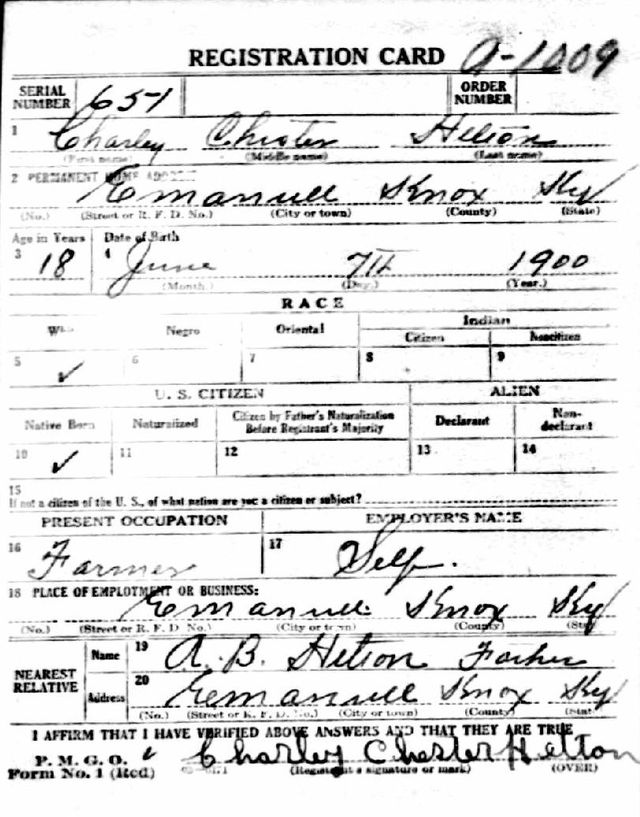 REGISTRATION CARD A-1009
SERIAL NUMBER 651 ORDER NUMBER
1 Charley Chester Helton
(First name) (Middle name) (Last name)
2 PERMANENT HOME ADDRESS
Emanuell Knox Ky
(No.) (Street or R. F. D. No.) (City or town) (County) (State)
Age in Years Date of Birth
3 18 4 June 7th 1900
(Month.) (Day.) (Year.)
RACE
Negro Oriental Indian
Citizen Noncitizen
5 ✓ 6 7 8 9
U. S. CITIZEN ALIEN
Native Born Naturalized Citizen by Father's Naturalization Before Registrant's Majority Declarant Non-declarant
10 ✓ 11 12 13 14
15
If not a citizen of the U. S., of what nation are you a citizen or subject?
PRESENT OCCUPATION EMPLOYER'S NAME
16 Farmer 17 Self.
18 PLACE OF EMPLOYMENT OR BUSINESS:
Emanuell Knox Ky
(No.) (Street or R. F. D. No.) (City or town) (County) (State)
NEAREST RELATIVE Name 19 A. B. Helton Father
Address 20 Emanuell Knox Ky
(No.) (Street or R. F. D. No.) (City or town) (County) (State)
I AFFIRM THAT I HAVE VERIFIED ABOVE ANSWERS AND THAT THEY ARE TRUE
P. M. G. O. Charley Chester Helton
Form No. 1 (Red) (Registrant's signature or mark) (OVER)